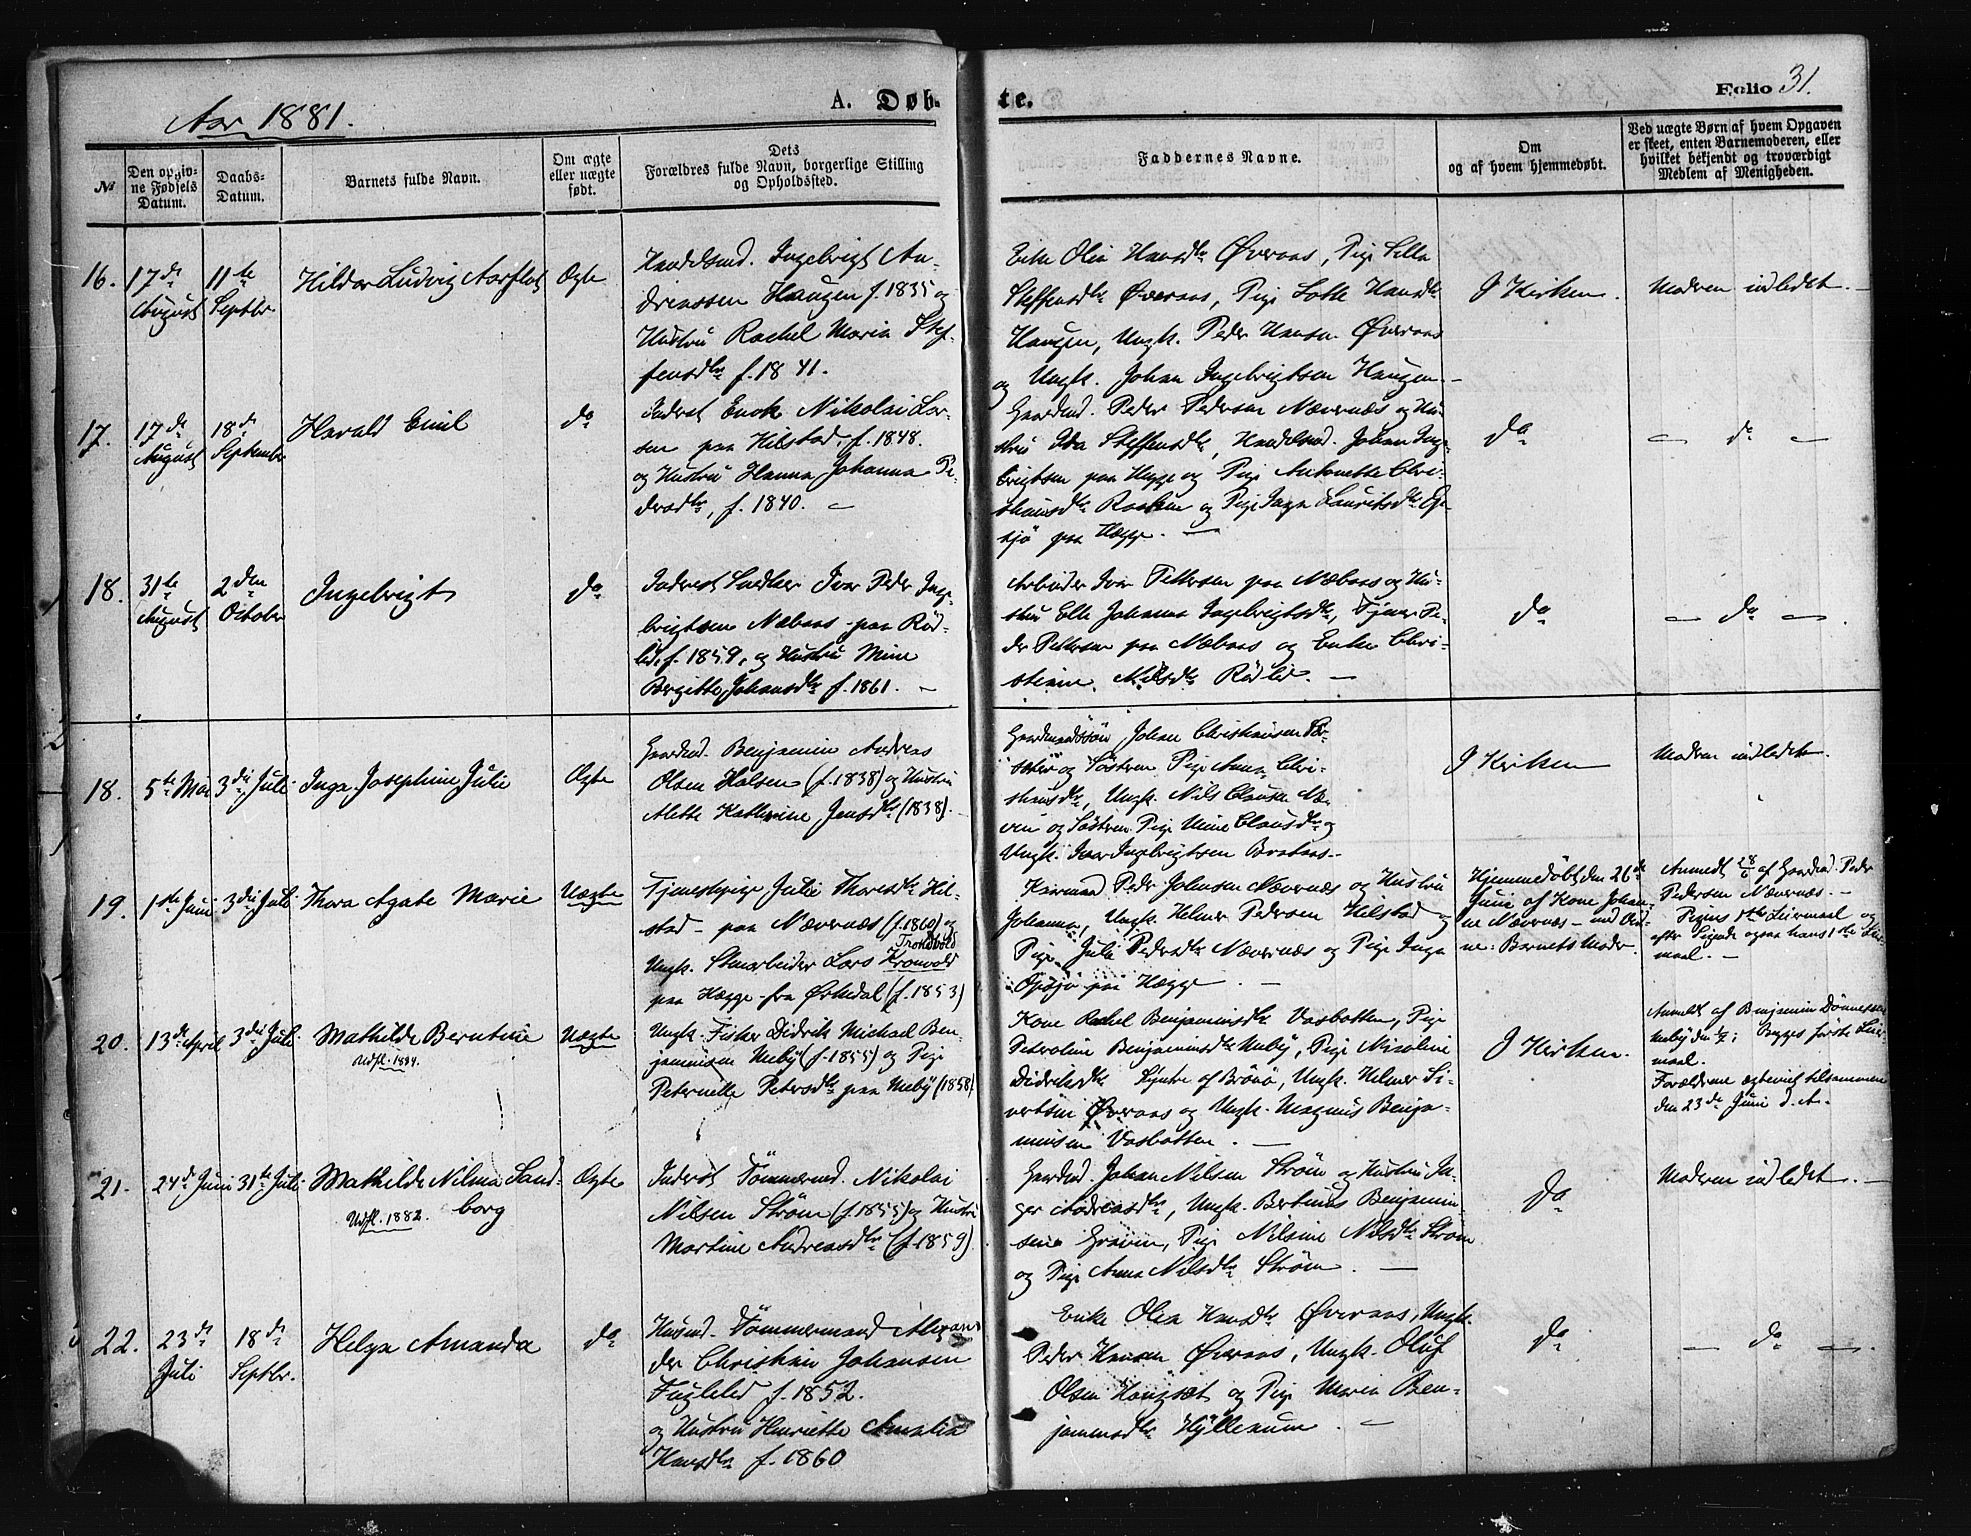 Aar 1881.
A. Døb-
te.
Folio 31.
№
Den opgiv-
ne Fødsels
Datum.
Daabs-
Datum.
Barnets fulde Navn.
Om ægte
eller uægte
født.
Dets
Forældres fulde Navn, borgerlige Stilling
og Opholdssted.
Faddernes Navne.
Om
og af hvem hjemmedøbt.
Ved uægte Børn af hvem Opgaven
er skeet, enten Barnemoderen, eller
hvilket bekjendt og troværdigt
Medlem af Menigheden.
16.
17de
August
11te
Septbr.
Hildor Ludvig Aarflot
Ægte
Ingebrigt An-
driassen Haugen f. 1835 og
Hustru Rachel Maria Stef-
fensdtr f. 1841.
Enke Olia Hansdtr Øveraas, Pige
Steffensdtr Øveraas, Pige Lotte Hansdtr
Haugen, Ungk. Peder Hansen Øveraas
og Ungk. Johan Ingebrigtsen Haugen.
I Kirken.
Modren indledet.
17.
17de
August
18de
September
Harald Emil
do
Inderst Enok Nikolai Lar-
sen paa Hilstad, f. 1848.
og Hustru Hanna Johanna Pe-
dersdtr, f. 1840.
Gaardmd. Peder Pedersen Nævernæs og Hu-
stru Ida Steffensdtr, Johan Inge-
brigtsen paa Hegge og Pige Antonette Chri-
stiansdtr og Pige Inga Lauritsdtr
paa Hegge.
do
do
18.
31te
August
2den
October
Ingebrigt
do
Inderst Snedker Ivar Peder Inge-
brigtsen Næbaas paa Rød-
lid, f. 1859, og Hustru Mine
Bergitte Johansdtr f. 1861.
Arbeider Ivar Pettersen paa Næbaas og Hu-
stru Elle Johanna Ingebrigtsdtr, Tjener Pe-
der Pettersen paa Næbaas og Enke Chri-
stianne Nilsdtr Rødlid.
do
do
18.
5te Mai
3die Juli
Inga Josephine Julie
Ægte
Gaardmd. Benjamin Andreas
Olsen Holsen (f. 1838) og Hustru
Alette Kathrine Jensdtr (1838).
Gaardmandssøn Johan Christiansen
og Søstren Pige Anna Chri-
stiansdtr, Ungk. Nils Clausen
og Søstren Pige Mine Clausdtr og
Ungk. Ivar Ingebrigtsen Brataas
I Kirken
Modren indledet.
19.
1ste Juni
3die Juli
Thora Agate Marie
Uægte
Tjenestepige Julie Thoresdtr Hil-
stad paa Nævernæs (f. 1860) og
Trondvold
Ungk. Stenarbeider Lars Kronvold
paa Hegge fra Ørkedal (f. 1853)
Peder Johnsen Nævernæs og Hustru
Johanna, Ungk. Helmer Pedersen Hilstad og
Pige Julie Pedersdtr Nævernæs og Pige Inga
paa Hegge.
Hjemmedøbt den 26de
Juni af Kone Johan-
ne Nævernæs
Barnets Moder
Anmeldt 28/6 af Gaardmd. Peder
Pedersen Nævernæs.
Pigens 1ste Leiermaal og
efter Sigende ogsaa hans 1ste Leier-
maal.
20.
13de April
3die Juli
Mathilde Berntine
Udfl. 1884.
Uægte
Ungk. Fisker Didrik Michael Ben-
jaminsen Meby (f. 1855) og Pige
Peternelle Petersdtr paa Meby (1858)
Kone Rachel Benjaminsdtr Vasbotten, Pige
Peteroline Benjaminsdtr Meby, Pige Nicoline
Didriksdtr af Brönö, Ungk. Helmer Si-
vertsen Øveraas og Ungk. Magnus Benja-
minsen Vasbotten.
I Kirken.
Anmeldt af Benjamin Dønnessen
Meby; Begges første Leier-
maal.
Forældrene ægteviet tilsammen
den 23de Juni d. A.
21.
24de Juni
31te Juli
Mathilde Nilma Sand-
borg
Udfl. 1882.
Ægte
Inderst Tömmermd. Nikolai
Nilsen Ström (f. 1855) og Hustru
Martine Andreasdtr (f. 1859).
Gaardmd. Johan Nilsen Ström og Hustru In-
ger Andreasdtr, Ungk. Bertinus Benjamin-
sen, Pige Nilsine Nilsdtr Ström
og Pige Anna Nilsdtr Ström.
do
Modren indledet.
22.
23de
Juli
18de
Septbr.
Helga Amanda
do
Husmd. Tömmermand Alexan-
der Christian Johansen
Fuglelid f. 1852.
og Hustru Henriette Amalia
Hansdtr f. 1860
Enke Olia Hansdtr Øveraas, Ungk.
Peder Hansen Øveraas, Ungk. Oluf
Olsen Hongset og Pige Maria Ben-
jaminsdtr Hyllesum.
do
do